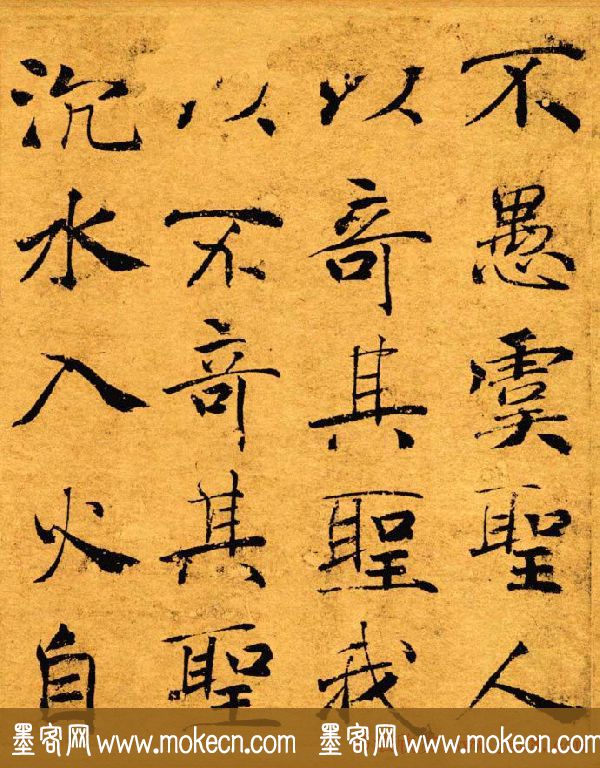 不愚虞聖人
以竒其聖我
以不竒其聖
沉水入火自
墨客网 www.mokecn.com 墨客网 www.mokecn.com